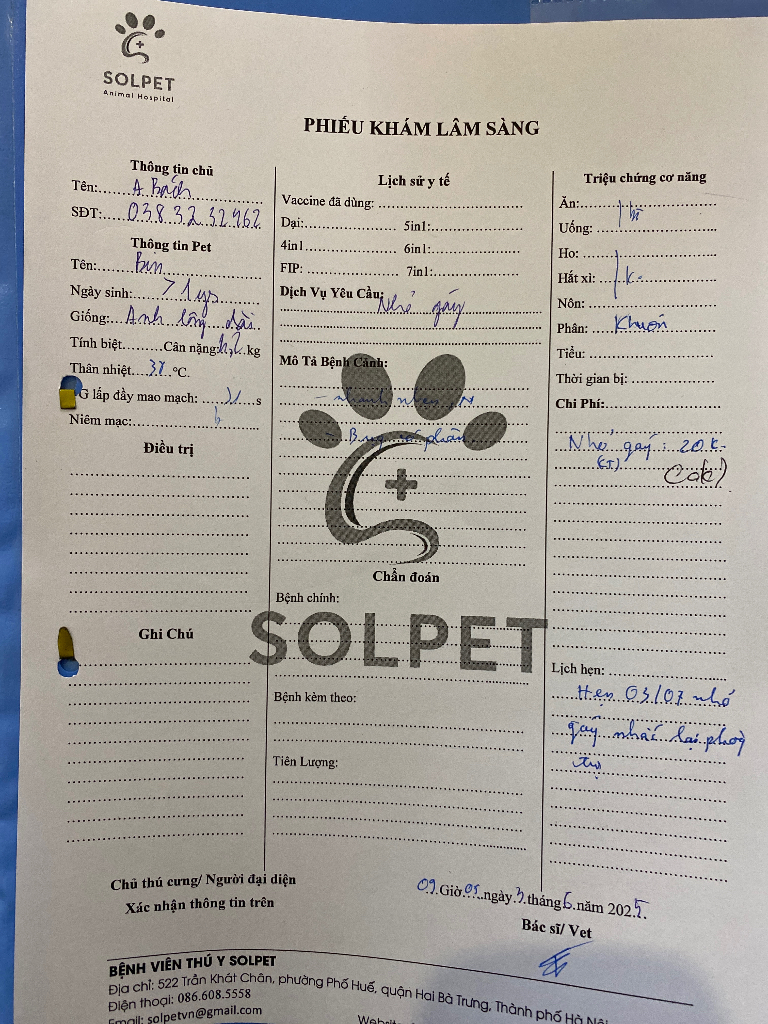 SOLPET
Animal Hospital
PHIẾU KHÁM LÂM SÀNG
Thông tin chủ
Tên: A Bách
SĐT: 038 32 32 962
Thông tin Pet
Tên: Bin
Ngày sinh: > 1
Giống: Anh lông dài
Tính biệt.........Cân nặng: kg
Thân nhiệt...38...°C.
G lấp đầy mao mạch: s
Niêm mạc:
Điều trị
Ghi Chú
Lịch sử y tế
Vaccine đã dùng:
Dại: 5in1:
4in1 6in1:
FIP: 7in1:
Dịch Vụ Yêu Cầu:
Nhỏ gáy
Mô Tả Bệnh Cảnh:
SOLPET
Chẩn đoán
Bệnh chính:
Bệnh kèm theo:
Tiên Lượng:
Triệu chứng cơ năng
Ăn:
Uống:
Ho:
Hắt xì:
Nôn:
Phân: Khuôn
Tiểu:
Thời gian bị:
Chi Phí:
Nhỏ gáy : 20k
Lịch hẹn:
Hẹn 03/07 nhỏ
gáy nhắc lại phòng
Chủ thú cưng/ Người đại diện
Xác nhận thông tin trên
09 Giờ 05 ngày 3 tháng 6 năm 2025.
Bác sĩ/ Vet
BỆNH VIÊN THÚ Y SOLPET
Địa chỉ: 522 Trần Khát Chân, phường Phố Huế, quận Hai Bà Trưng, Thành phố Hà Nội
Điện thoại: 086.608.5558
Email: solpetvn@gmail.com